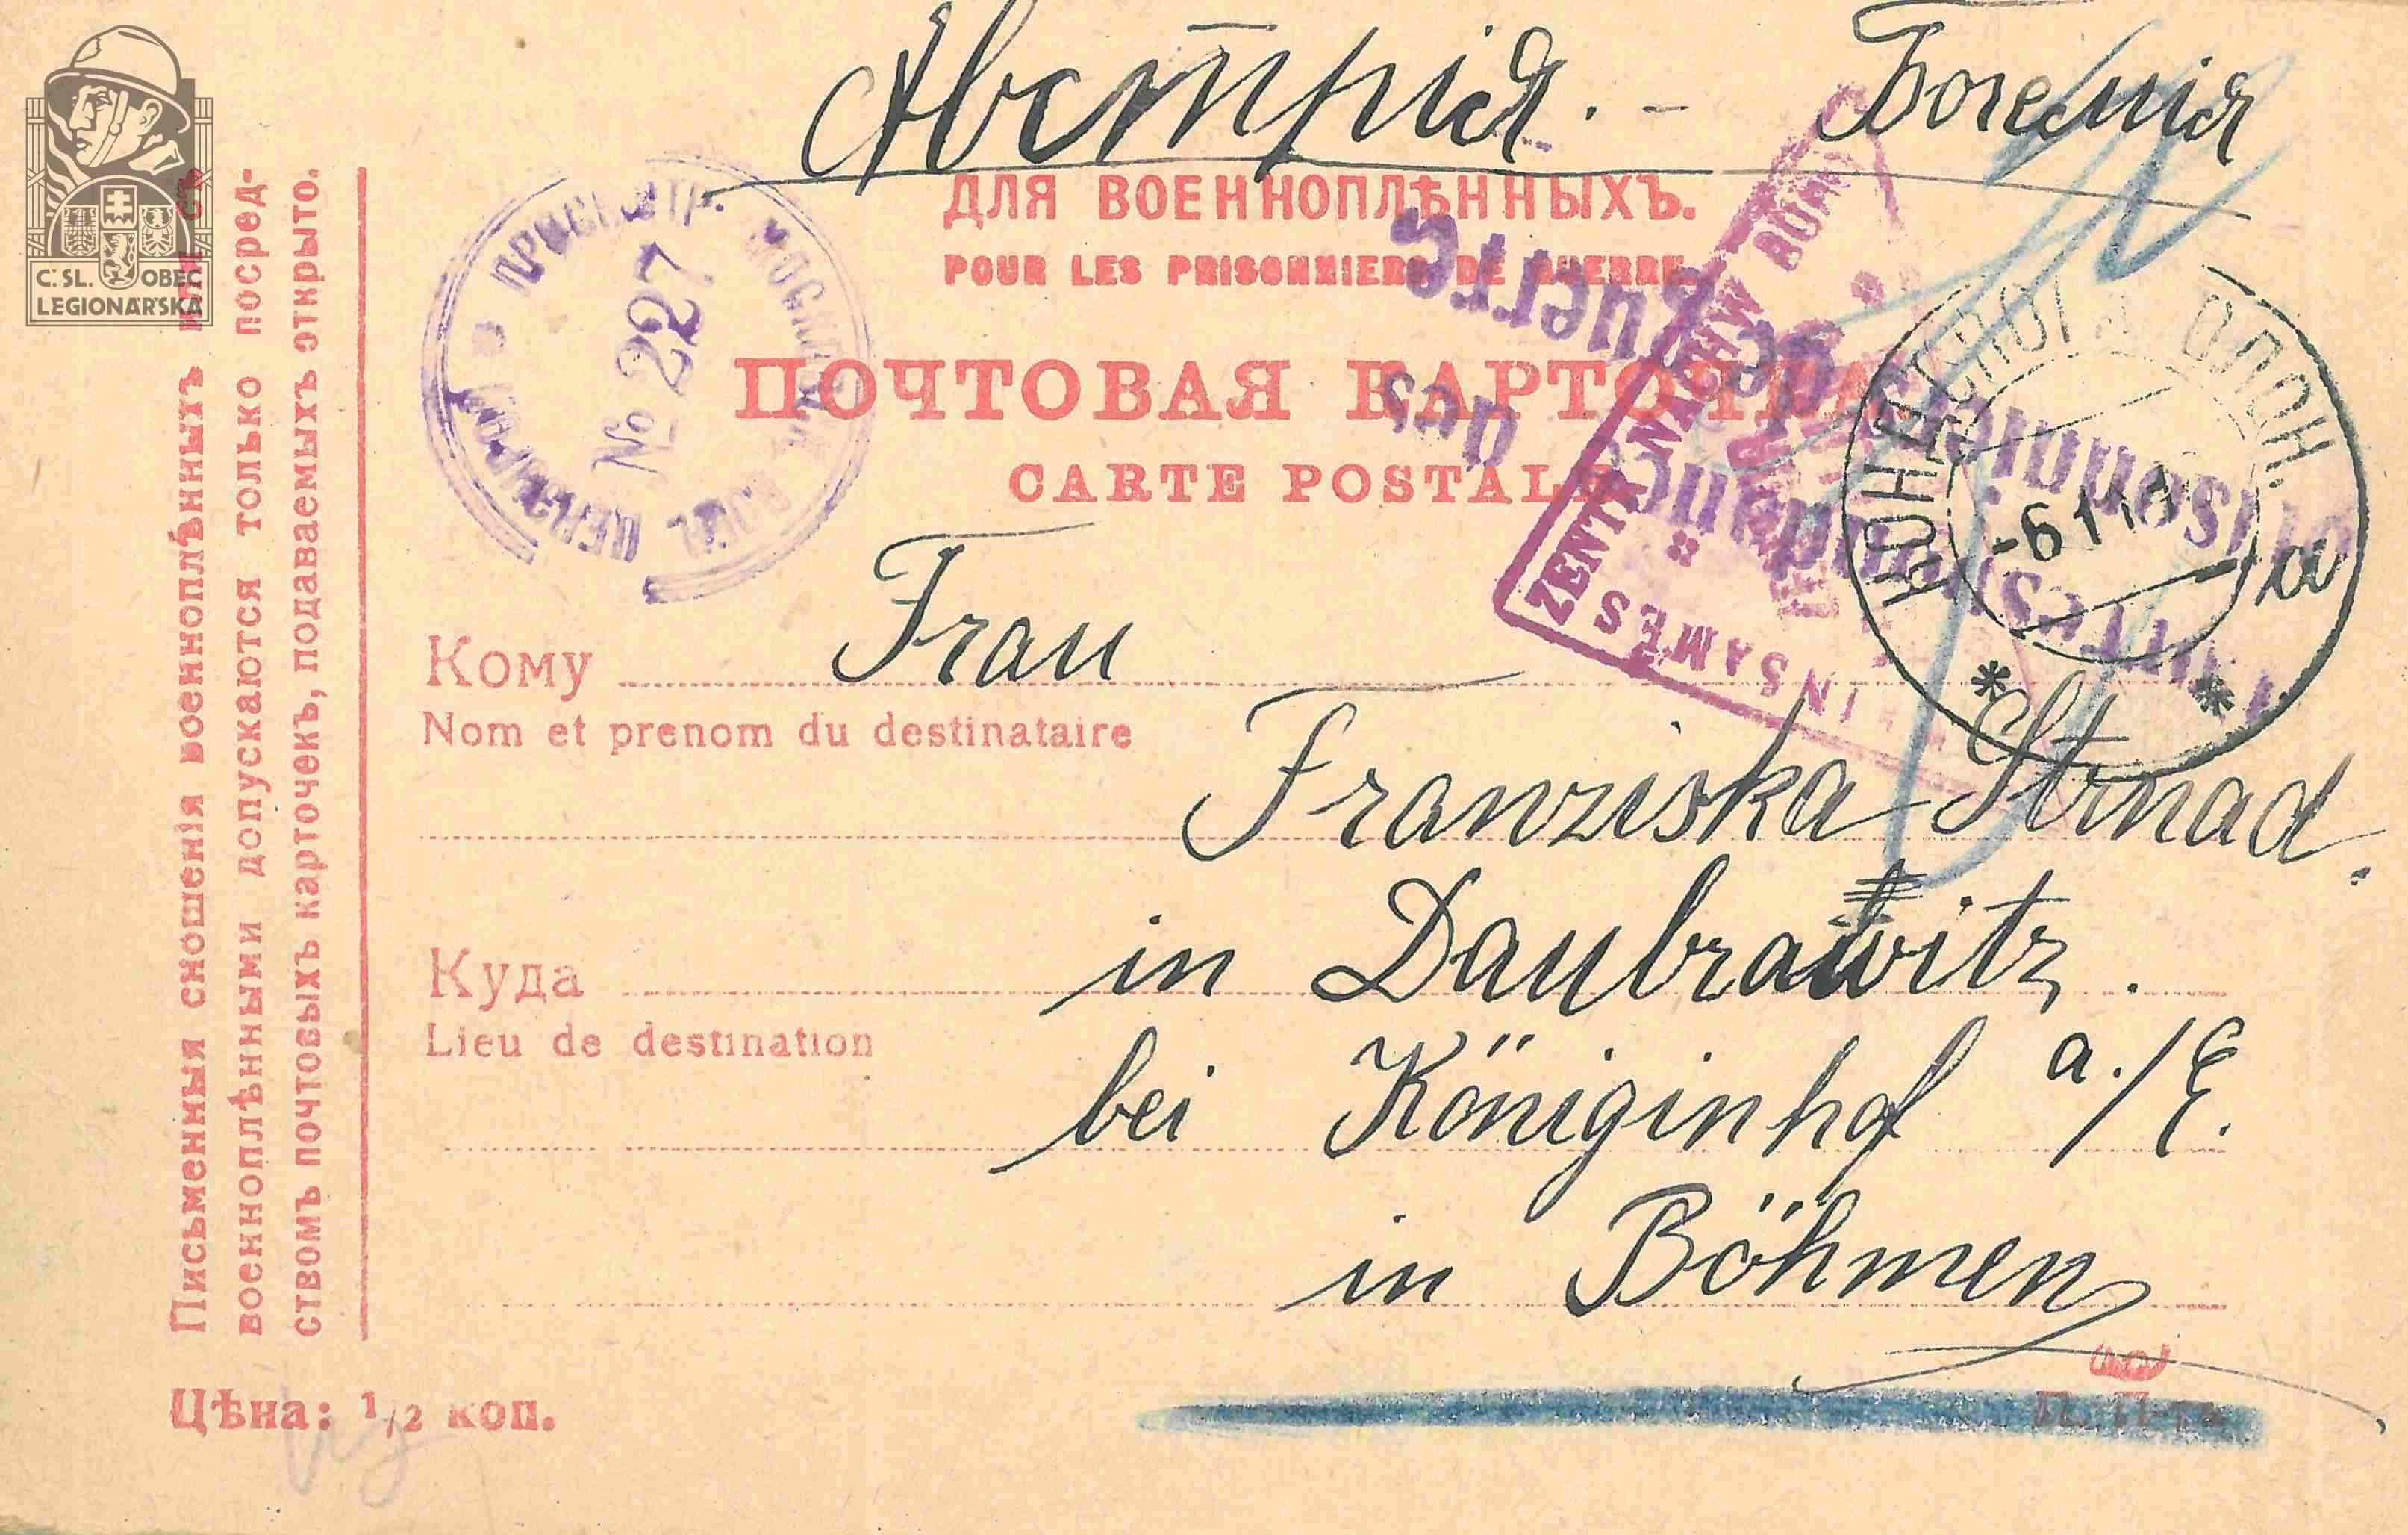 Австрія. - Богемія
ДЛЯ ВОЕННОПЛѢННЫХЪ.
POUR LES PRISONNIERS DE GUERRE.
ПОЧТОВАЯ КАРТОЧКА
CARTE POSTALE
Кому Frau
Nom et prenom du destinataire
Franziska Strnad.
Куда in Daubrawitz.
Lieu de destination
bei Königinhof a./E.
in Böhmen
Цѣна: 1/2 коп.
Письменныя сношенія военноплѣнныхъ или съ
военноплѣнными допускаются только посред-
ствомъ почтовыхъ карточекъ, подаваемыхъ открыто.
Č.SL. OBEC
LEGIONÁŘSKÁ
№ 227
Correspondance des
prisonniers de guerre
ZENTR NACHW
INSAMES
-6 1
а